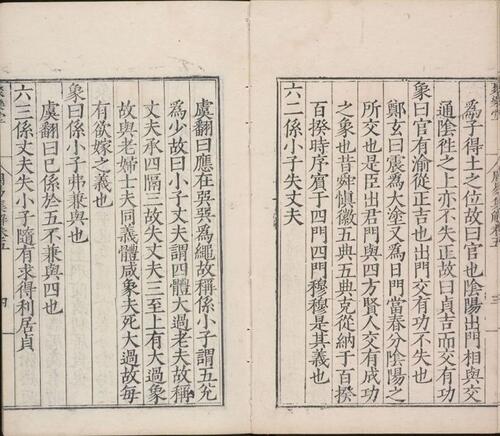 爲子得土之位故曰官也陰陽出門相與交
通陰徃之上亦不失正故曰貞吉而交有功
象曰官有渝從正吉也出門交有功不失也
鄭玄曰震爲大塗又爲日門當春分陰陽之
所交也是臣出君門與四方賢人交有成功
之象也昔舜慎徽五典五典克從納于百揆
百揆時序賓于四門四門穆穆是其義也
六二係小子失丈夫
虞翻曰應在巽巽爲繩故稱係小子謂五兌
爲少故曰小子丈夫謂四體大過老夫故稱
丈夫承四隔三故失丈夫三至上有大過象
故與老婦士夫同義體咸象夫死大過故每
有欲嫁之義也
象曰係小子弗兼與也
虞翻曰已係於五不兼與四也
六三係丈夫失小子隨有求得利居貞
四